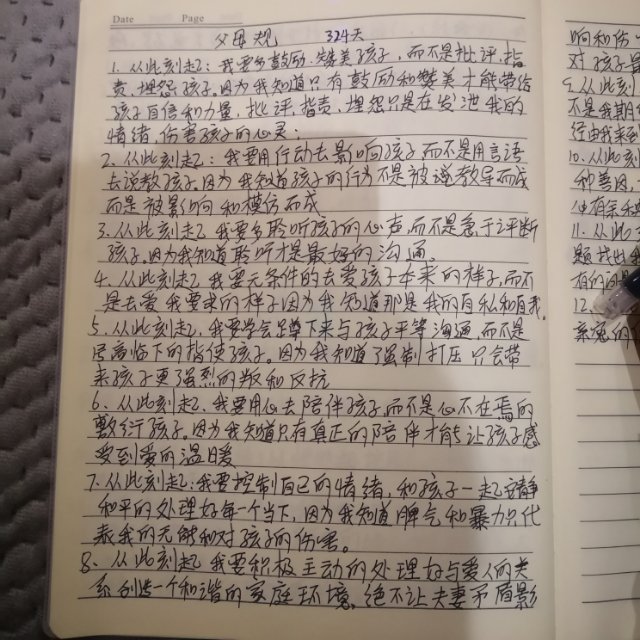 Date Page
父母规 324天
1. 从此刻起: 我要多鼓励、赞美孩子, 而不是批评、指
责、埋怨孩子。因为我知道只有鼓励和赞美才能带给
孩子自信和力量, 批评、指责、埋怨只是在发泄我的
情绪, 伤害孩子的心灵.
2. 从此刻起: 我要用行动去影响孩子而不是用言语
去说教孩子。因为我知道孩子的行为不是被说教导而成
而是被影响和模仿而成
3. 从此刻起我要多聆听孩子的心声, 而不是急于评断
孩子。因为我知道聆听才是最好的沟通。
4. 从此刻起我要无条件的去爱孩子本来的样子, 而不
是去爱我要求的样子因为我知道那是我的自私和自我.
5. 从此刻起. 我要学会蹲下来与孩子平等沟通, 而不是
居高临下的指使孩子。因为我知道了强制打压只会带
来孩子更强烈的叛和反抗
6. 从此刻起. 我要用心去陪伴孩子而不是心不在焉的
敷衍孩子。因为我知道只有真正的陪伴才能让孩子感
受到爱的温暖
7. 从此刻起: 我要控制自己的情绪, 和孩子一起安静
和平的处理好每一个当下, 因为我知道脾气和暴力只代
表我的无能和对孩子的伤害。
8. 从此刻起我要积极主动的处理好与爱人的关
系创造一个和谐的家庭环境。绝不让夫妻矛盾影
响和伤
对孩子
9. 从此刻
不是我期
经由我来到
10. 从此刻
种善因,
11. 从此
题找出
有的问
12.
系冤的